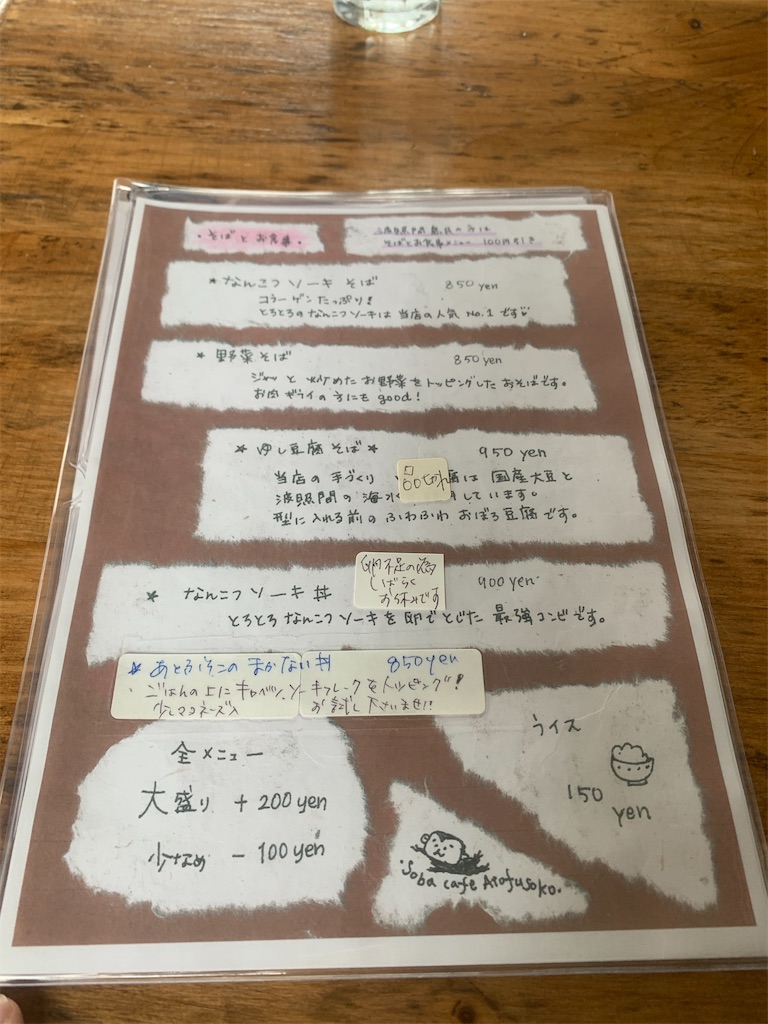 ・そばとお食事・
波照間島民の方は
そばとお食事メニュー 100円引き
★なんこつソーキそば 850yen
コラーゲンたっぷり!
とろとろのなんこつソーキは当店の人気No.1です♡
★野菜そば 850yen
ジャッと炒めたお野菜をトッピングしたおそばです。
お肉ギライの方にもgood!
★ゆし豆腐そば★ 950yen
当店の手づくり 腐は国産大豆と
品切れ
波照間の海水 用しています。
型に入れる前のふわふわおぼろ豆腐です。
卵不足の為
しばらく
お休みです
★なんこつソーキ丼 900yen
とろとろなんこつソーキを卵でとじた最強コンビです。
★ まかない丼 850yen
・ごはんの上にキャベツ、ソーキフレークをトッピング!
少しマヨネーズ入
お試し下さいませ!!
全メニュー
大盛り +200yen
少なめ -100yen
ライス
150
yen
Soba cafe Atofusoko.